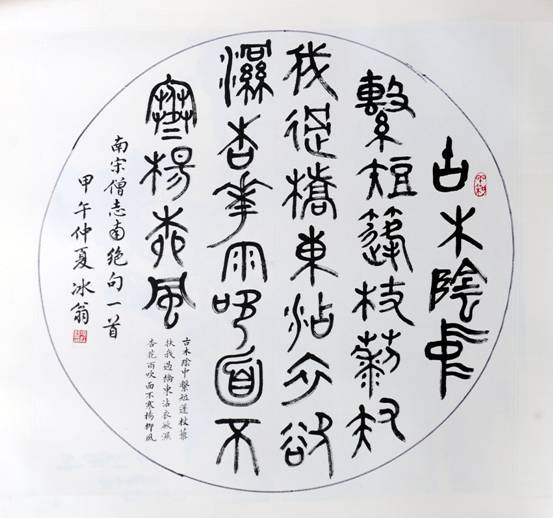 古木陰中
繫短篷杖藜扶
我過橋東沾衣欲
濕杏花雨吹面不
寒楊柳風
古木陰中繫短蓬杖藜
扶我過橋東沾衣欲濕
杏花雨吹面不寒楊柳風
南宋僧志南絶句一首
甲午仲夏冰翁